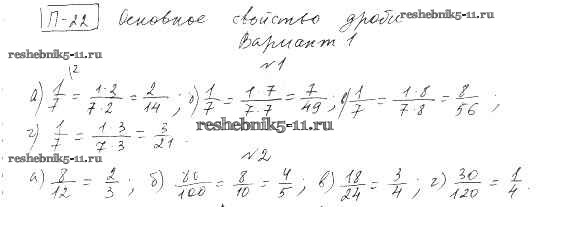 П-22 Основное свойство дроби
reshebnik5-11.ru
reshebnik5-11.ru
Вариант 1
№1
а) 1/7 = 1·2/7·2 = 2/14 ; б) 1/7 = 1·7/7·7 = 7/49 ; в) 1/7 = 1·8/7·8 = 8/56 ;
reshebnik5-11.ru
г) 1/7 = 1·3/7·3 = 3/21 .
reshebnik5-11.ru
№2
а) 8/12 = 2/3 ; б) 80/100 = 8/10 = 4/5 ; в) 18/24 = 3/4 ; г) 30/120 = 1/4 .